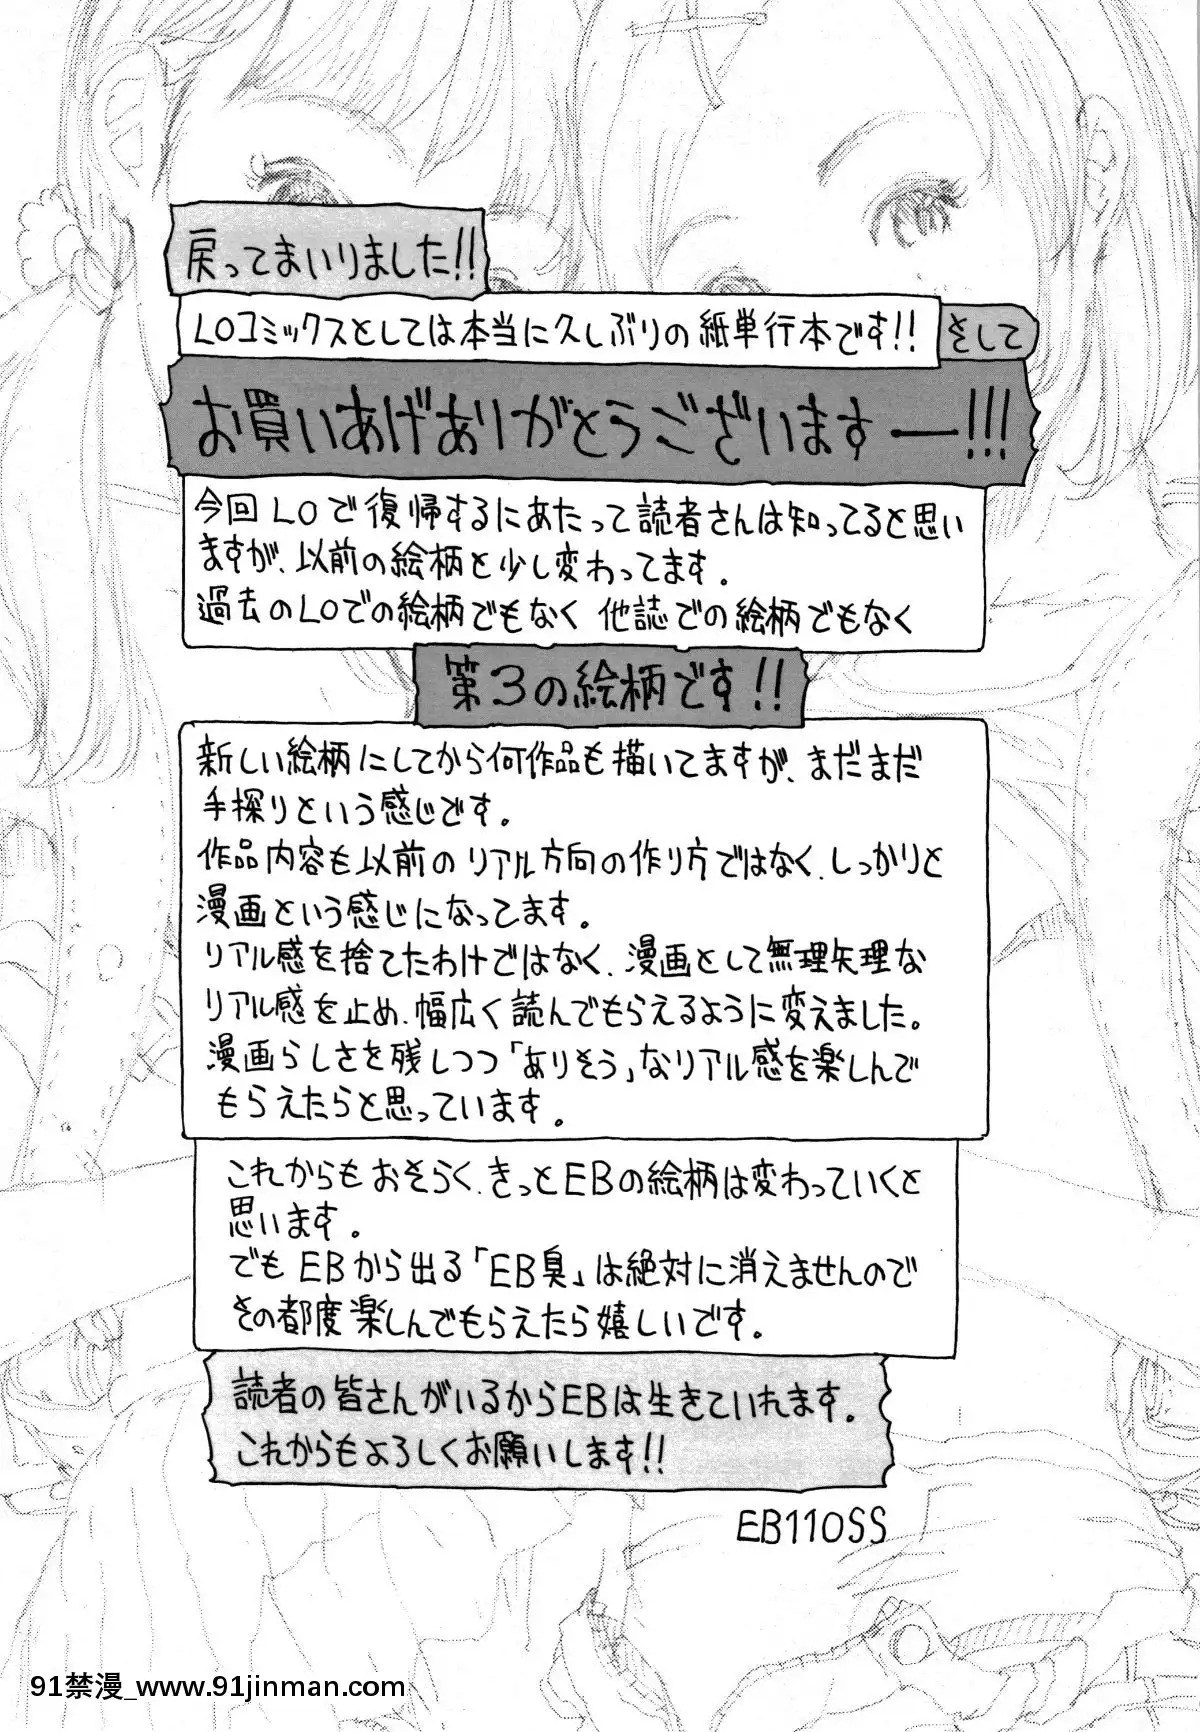 戻ってまいりました!!
LOコミックスとしては本当に久しぶりの紙単行本です!! そして
お買いあげありがとうございますー!!!
今回LOで復帰するにあたって読者さんは知ってると思い
ますが、以前の絵柄と少し変わってます。
過去のLOでの絵柄でもなく 他誌での絵柄でもなく
第3の絵柄です!!
新しい絵柄にしてから何作品も描いてますが、まだまだ
手探りという感じです。
作品内容も以前のリアル方向の作り方ではなく、しっかりと
漫画という感じになってます。
リアル感を捨てたわけではなく、漫画として無理矢理な
リアル感を止め、幅広く読んでもらえるように変えました。
漫画らしさを残しつつ「ありそう」なリアル感を楽しんで
もらえたらと思っています。
これからもおそらく、きっとEBの絵柄は変わっていくと
思います。
でもEBから出る「EB臭」は絶対に消えませんので
その都度楽しんでもらえたら嬉しいです。
読者の皆さんがいるからEBは生きていれます。
これからもよろしくお願いします!!
EB110SS
91禁漫_www.91jinman.com